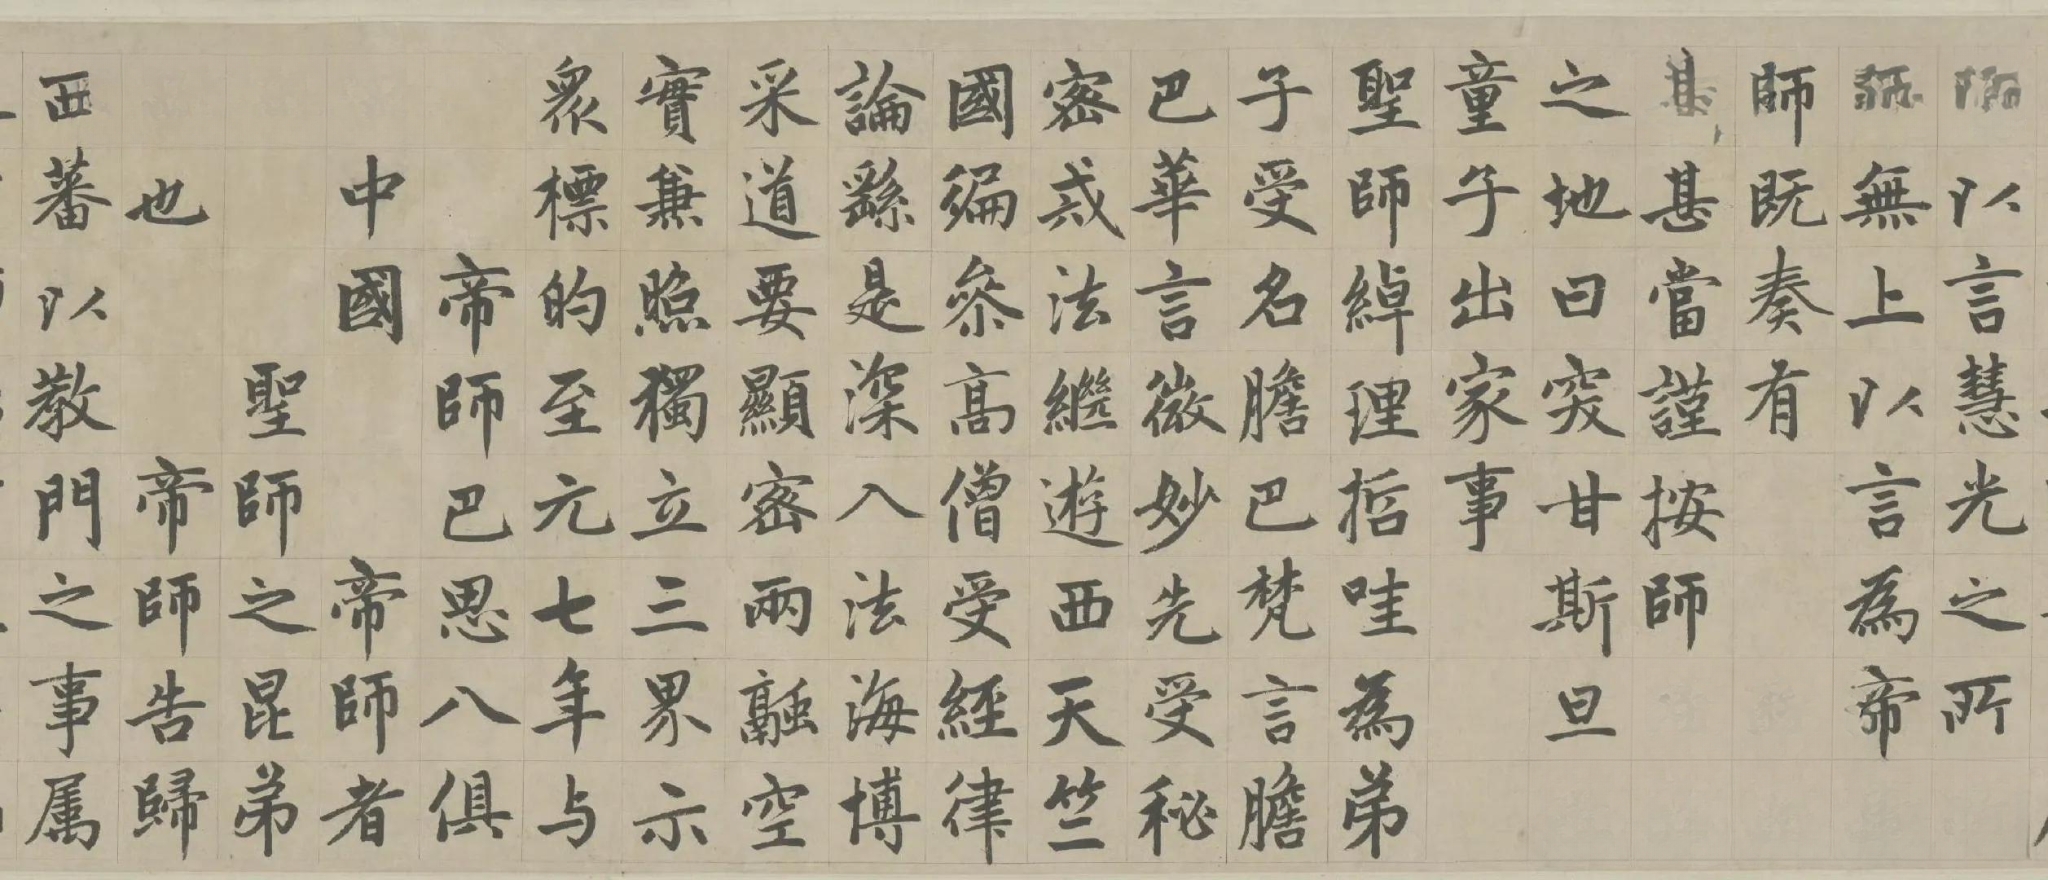 以言慧光之所
無上以言為帝
師既奏有
甚當謹按師
之地曰突甘斯旦
童子出家事
聖師綽理哲哇為弟
子受名膽巴梵言膽
巴華言微妙先受秘
密戒法繼遊西天竺
國徧參高僧受經律
論繇是深入法海博
采道要顯密兩融空
實兼照獨立三界示
衆標的至元七年与
帝師巴思八俱
中國帝師者
聖師之昆弟
也帝師告歸
西蕃以教門之事属